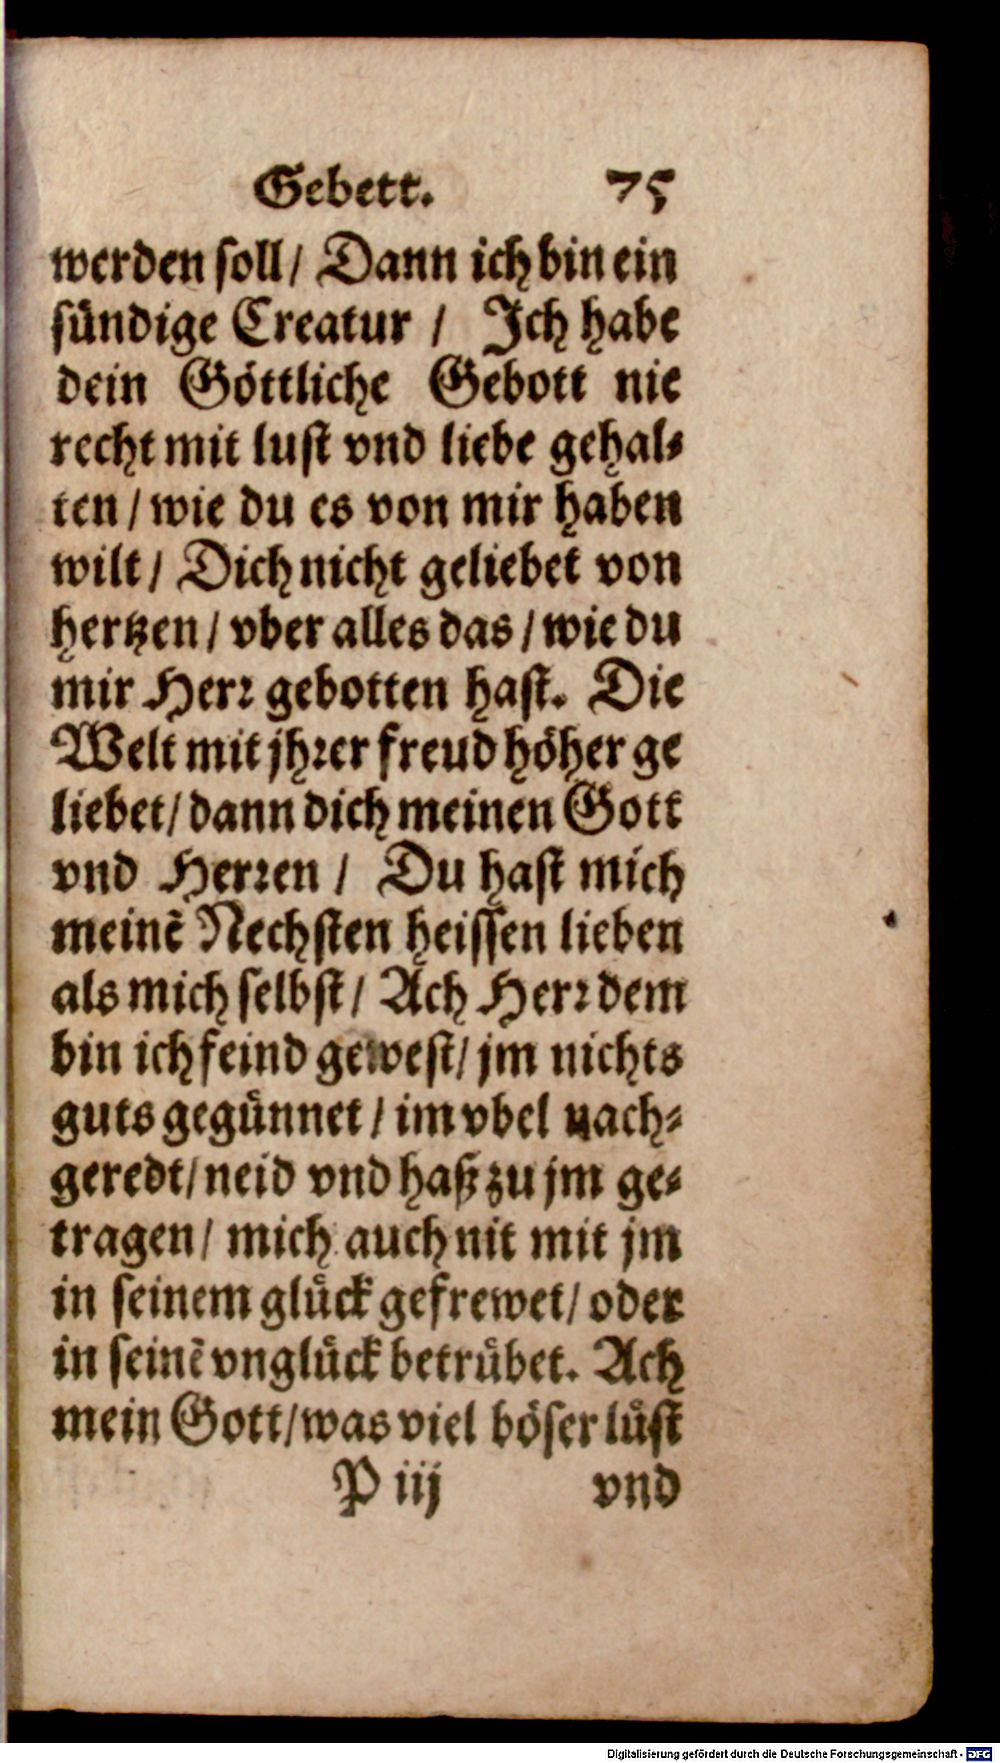 Gebett. 75
werden soll/ Dann ich bin ein
sündige Creatur / Ich habe
dein Göttliche Gebott nie
recht mit lust vnd liebe gehal⸗
ten / wie du es von mir haben
wilt / Dich nicht geliebet von
hertzen / vber alles das / wie du
mir Herꝛ gebotten hast. Die
Welt mit jhꝛer freud höher ge
liebet / dann dich meinen Gott
vnd Herꝛen / Du hast mich
meinẽ Nechsten heissen lieben
als mich selbst / Ach Herꝛ dem
bin ich feind gewest / jm nichts
guts gegünnet / im vbel nach⸗
geredt / neid vnd haß zu jm ge⸗
tragen / mich auch nit mit jm
in seinem glück gefrewet / oder
in seinẽ vnglück betrübet. Ach
mein Gott / was viel böser lüst
P iij vnd
Digitalisierung gefördert durch die Deutsche Forschungsgemeinschaft - DFG